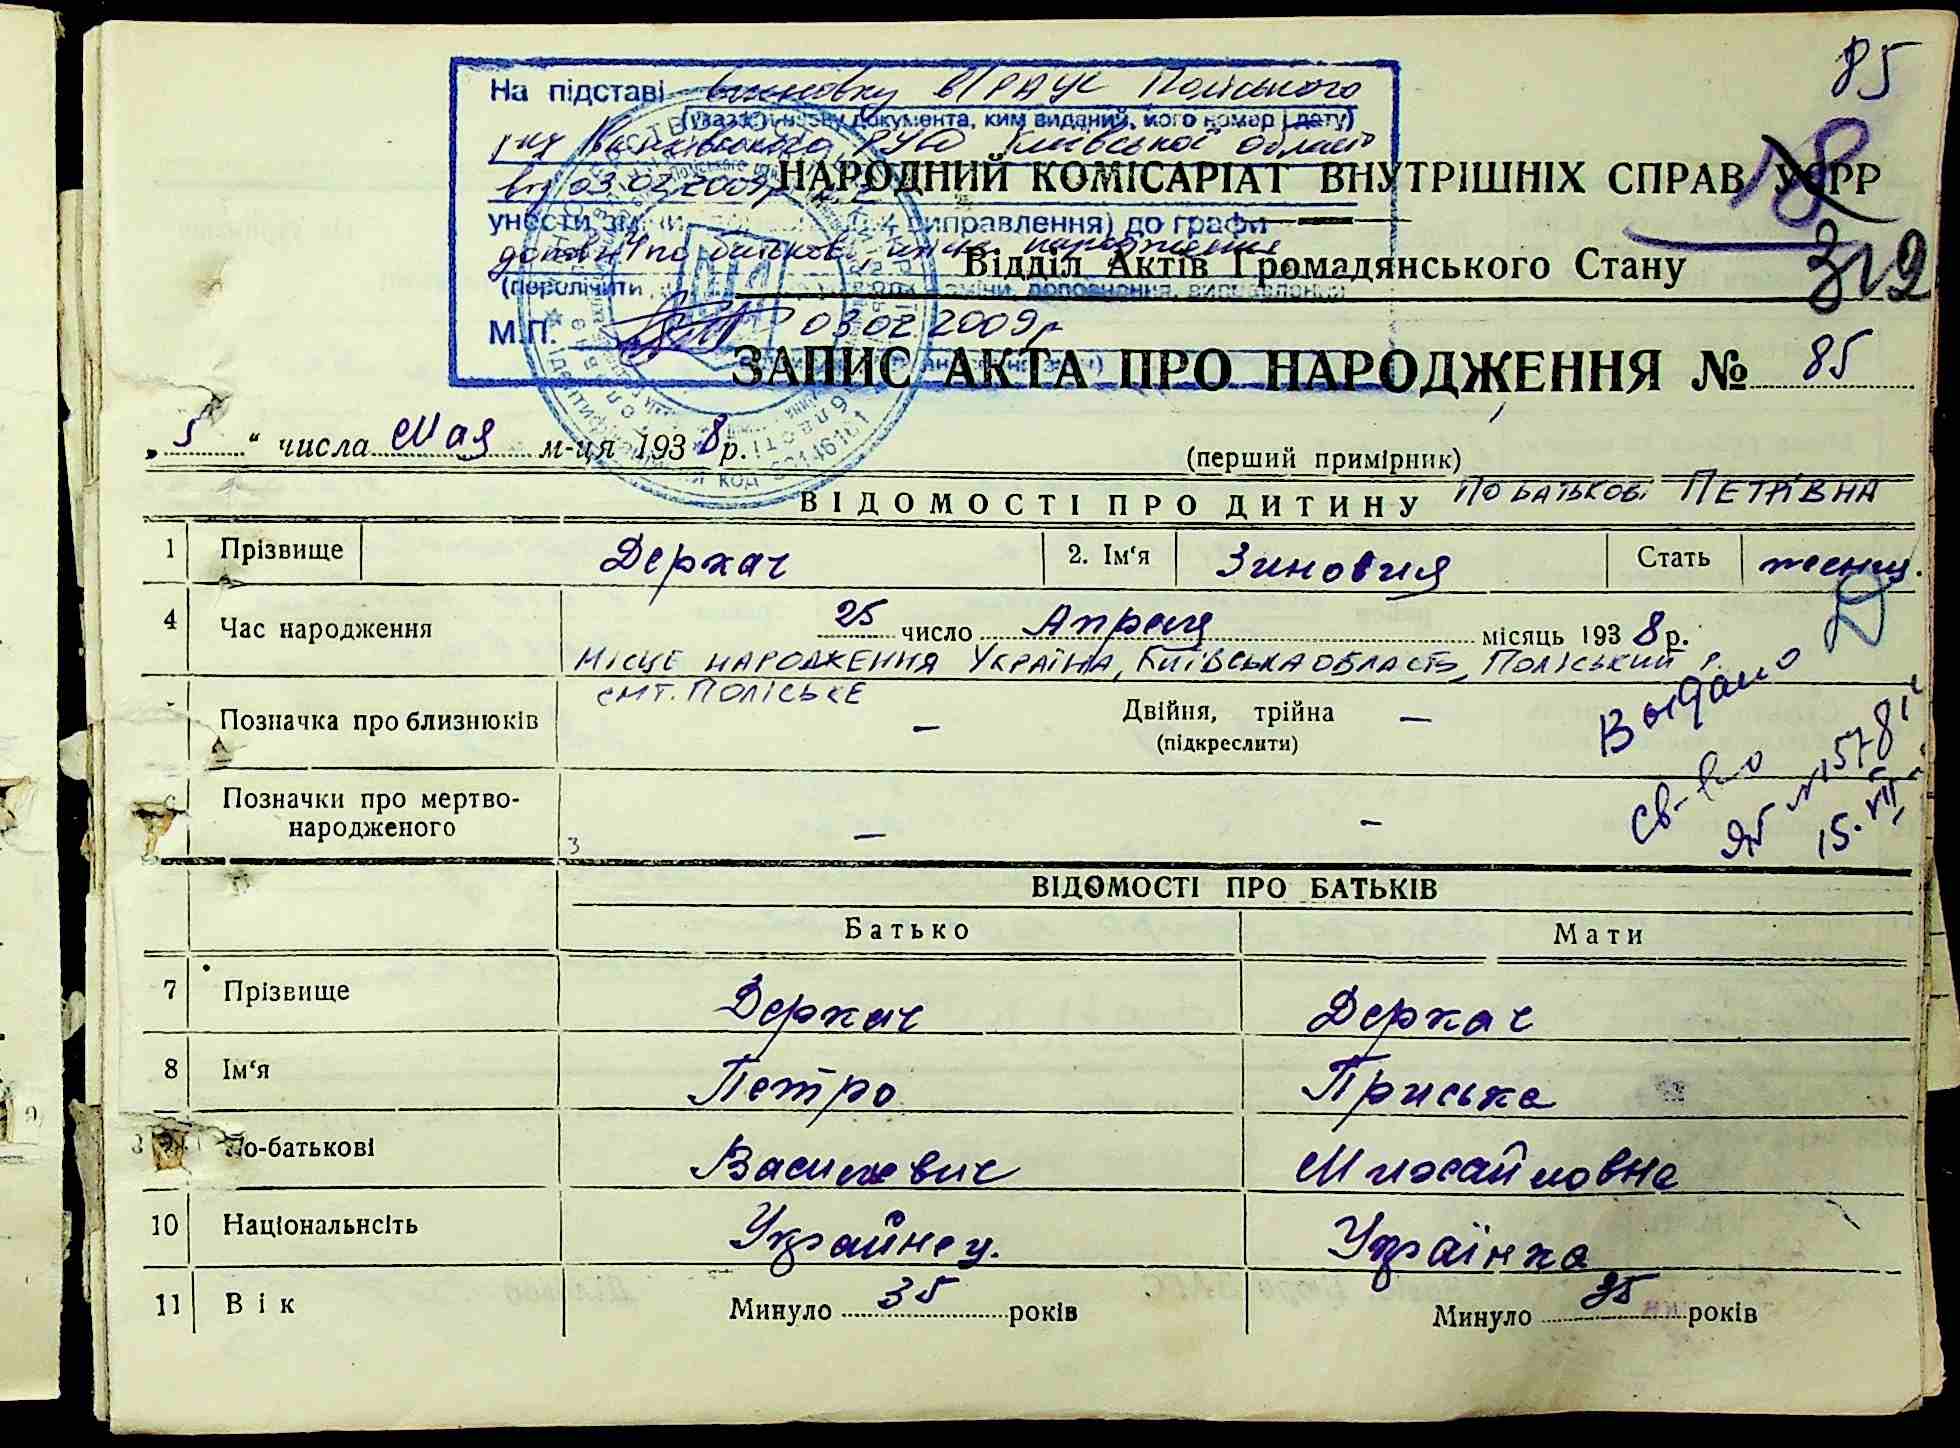 85
На підставі висновку вРАЦС Поліського
(указати назву документа, ким виданий, його номер і дату)
РУЮ Київської області
від 03.02.2009р
18
НАРОДНИЙ КОМІСАРІАТ ВНУТРІШНІХ СПРАВ УСРР
унести зміни виправлення) до графи
доповн по батькові, місце народження
Відділ Актів Громадянського Стану
312
(перелічити зміни, доповнення, виправлення)
М.П. 03 02 2009р
ЗАПИС АКТА ПРО НАРОДЖЕННЯ № 85
„ 5 “ числа Мая м-ця 1938 р.
(перший примірник)
ВІДОМОСТІ ПРО ДИТИНУ ПО БАТЬКОВІ ПЕТРІВНА
1 Прізвище Деркач 2. Ім‘я Зиновия Стать женщ.
4 Час народження 25 число Апреля місяць 1938 р.
МІСЦЕ НАРОДЖЕННЯ УКРАЇНА, КИЇВСЬКА ОБЛАСТЬ, ПОЛІСЬКИЙ р.
СМТ. ПОЛІСЬКЕ
Позначка про близнюків — Двійня, трійна —
(підкреслити)
Выдано
св-во
15.VII
6 Позначки про мертво-
народженого — —
ВІДОМОСТІ ПРО БАТЬКІВ
Батько Мати
7 Прізвище Деркач Деркач
8 Ім‘я Петро Приська
По-батькові Василевич Михайловна
10 Національнсіть Украйнец. Українка
11 Вік Минуло 35 років Минуло 35 років